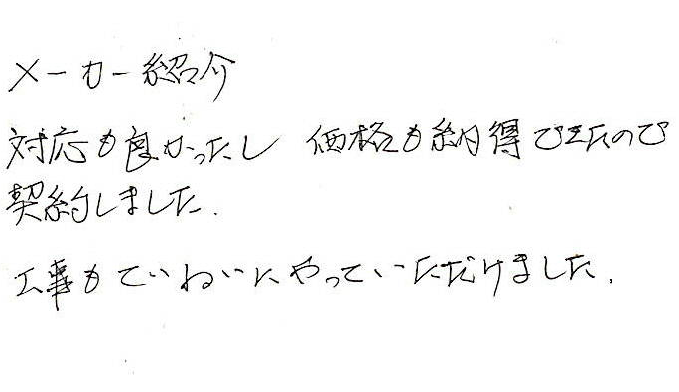 メーカー紹介
対応も良かったし 価格も納得できたので
契約しました.
工事もていねいにやっていただけました.